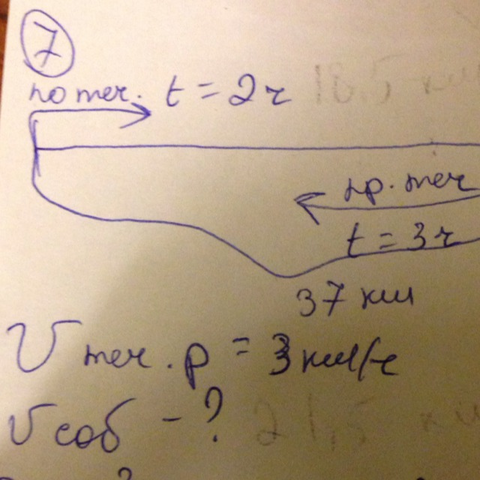 7
по теч. t = 2ч
18,5 км
пр. теч
t = 3ч
37 км
V теч. р = 3 км/ч
V соб - ?
21,5 км